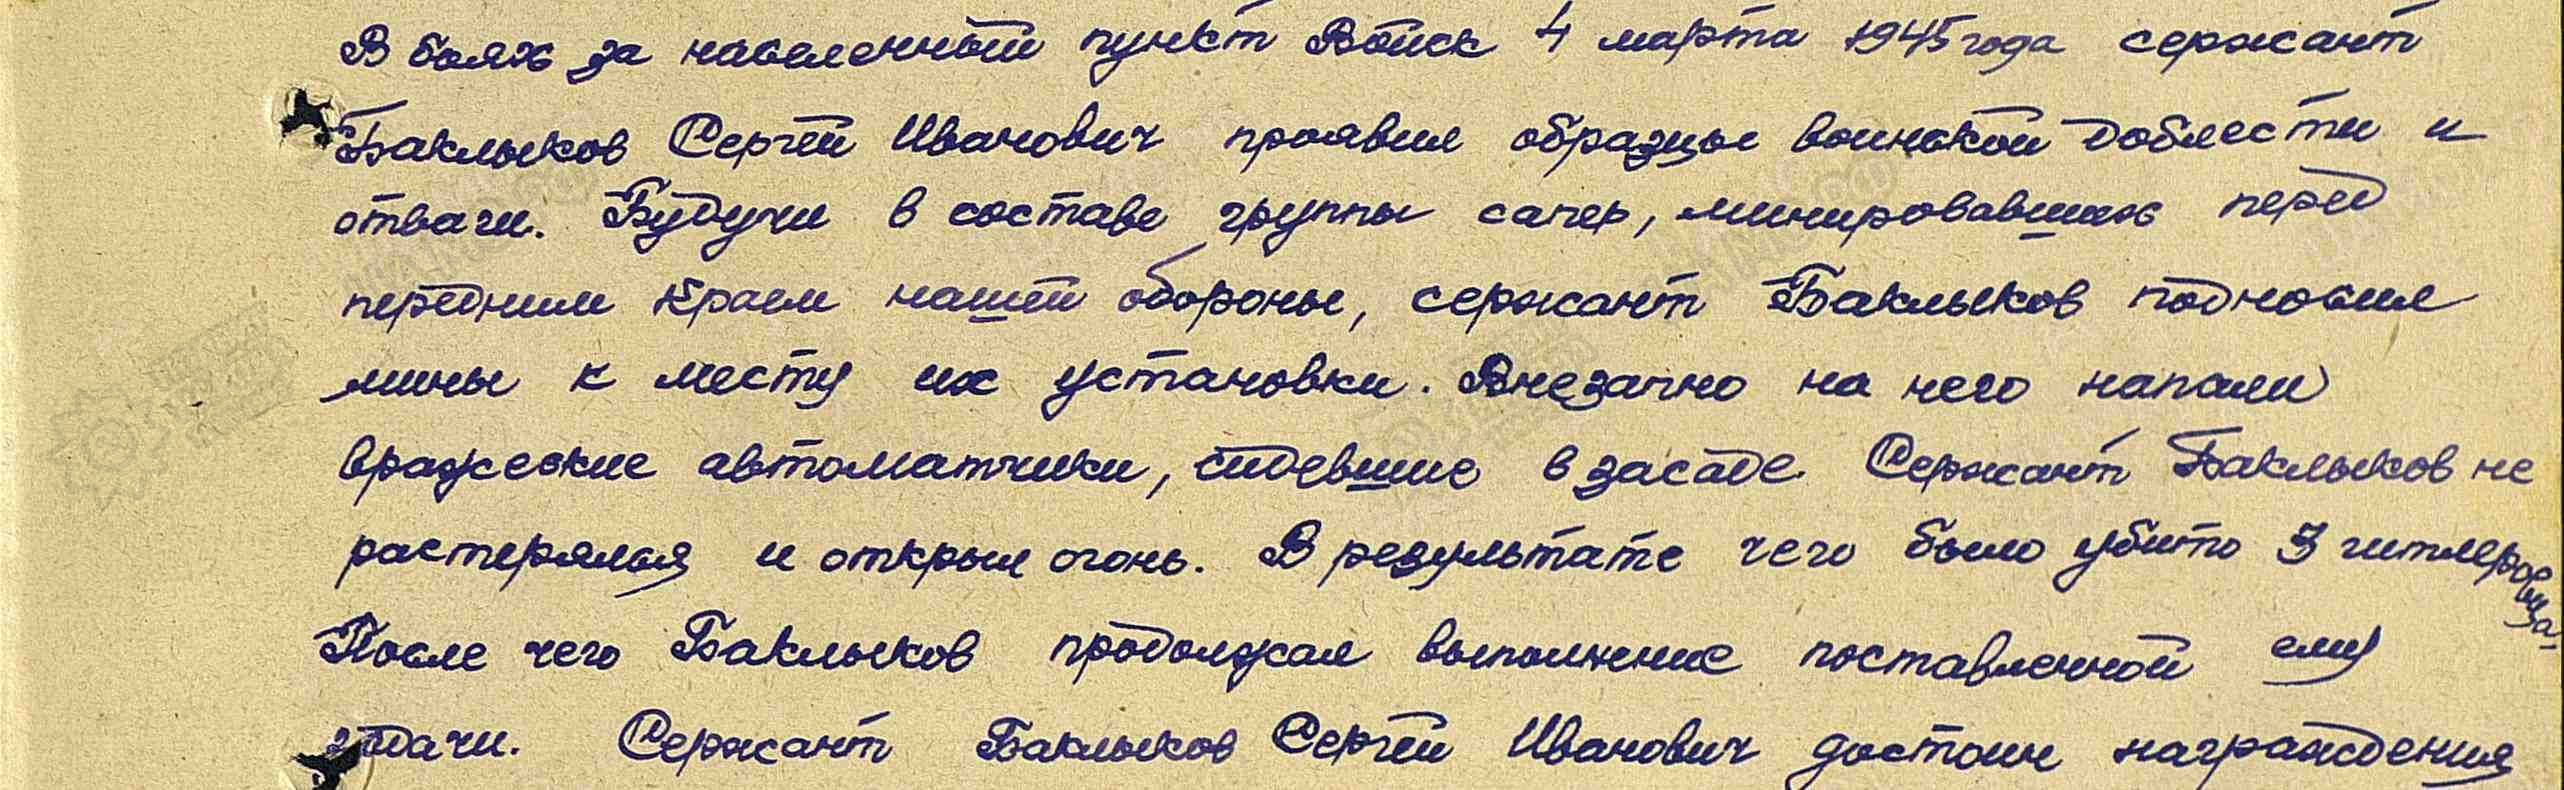 В боях за населенный пункт Войск 4 марта 1945 года сержант
Баклыков Сергей Иванович проявил образцы воинской доблести и
отваги. Будучи в составе группы сапер, минировавших перед
передним краем нашей обороны, сержант Баклыков подносил
мины к месту их установки. Внезапно на него напали
вражеские автоматчики, сидевшие в засаде. Сержант Баклыков не
растерялся и открыл огонь. В результате чего было убито 3 гитлеровца.
После чего Баклыков продолжал выполнение поставленной ему
задачи. Сержант Баклыков Сергей Иванович достоин награждения